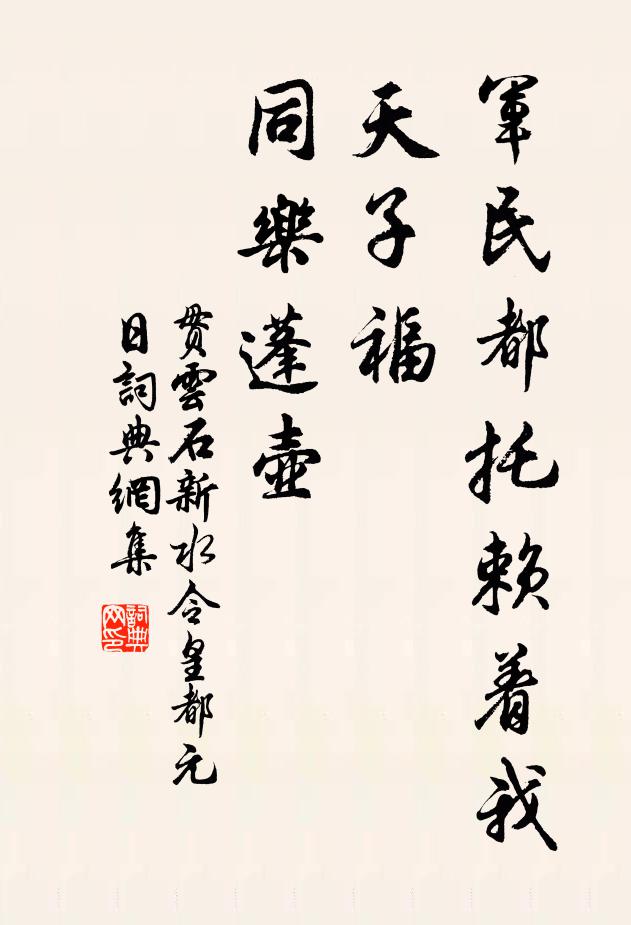 軍民都托賴着我
天子福
同樂蓬壺
貫雲石新水令皇都元
日詞典網集
詞典
网印